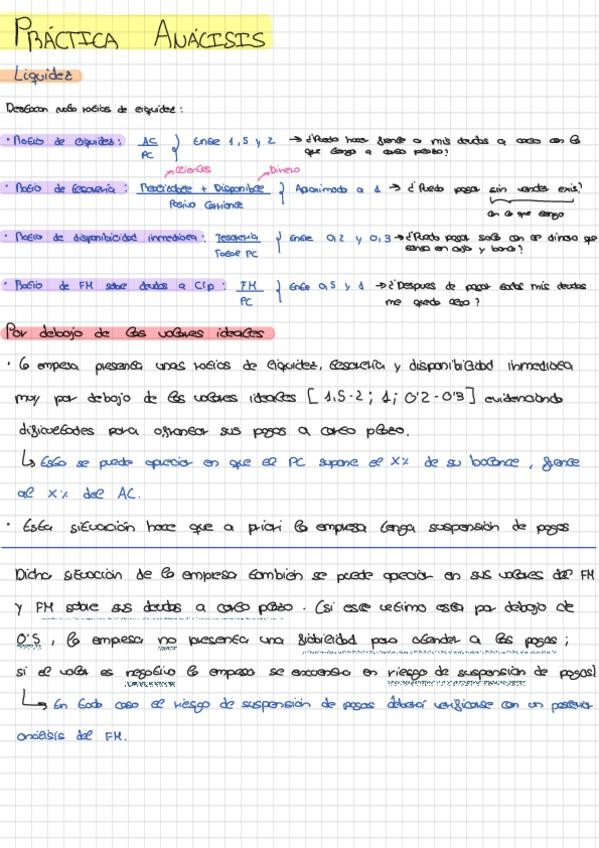 PRÁCTICA ANÁLISIS
Liquidez
Destacan ratios de liquidez:
· Ratio de liquidez: AC / PC } Entre 1,5 y 2 → ¿Puedo hacer frente a mis deudas a corto con lo que tengo a corto plazo?
Clientes Dinero
· Ratio de tesorería: Realizable + Disponible / Pasivo Corriente } Aproximado a 1 → ¿Puedo pagar sin vender exis?
con lo que tengo
· Ratio de disponibilidad inmediata: Tesorería / Total PC } Entre 0,2 y 0,3 → ¿Puedo pagar solo con el dinero que tengo en caja y banco?
· Ratio de FM sobre deudas a C/p: FM / PC } Entre 0,5 y 1 → ¿Despues de pagar todas mis deudas me queda algo?
Por debajo de los valores ideales
· La empresa presenta unos ratios de liquidez, tesorería y disponibilidad inmediata
muy por debajo de los valores ideales [1,5-2; 1; 0'2-0'3] evidenciando
dificultades para afrontar sus pagos a corto plazo.
↳ Esto se puede apreciar en que el PC supone el X% de su balance, frente
al X% del AC.
· Esta situación hace que a priori la empresa tenga suspensión de pagos
Dicha situación de la empresa también se puede apreciar en sus valores del FM
y FM sobre sus deudas a corto plazo. (si este último esta por debajo de
0'5, la empresa no presenta una fiabilidad para atender a los pagos;
si el valor es negativo la empresa se encuentra en riesgo de suspensión de pagos)
↳ En todo caso el riesgo de suspensión de pagos deberá verificarse con un posterior
análisis del FM.